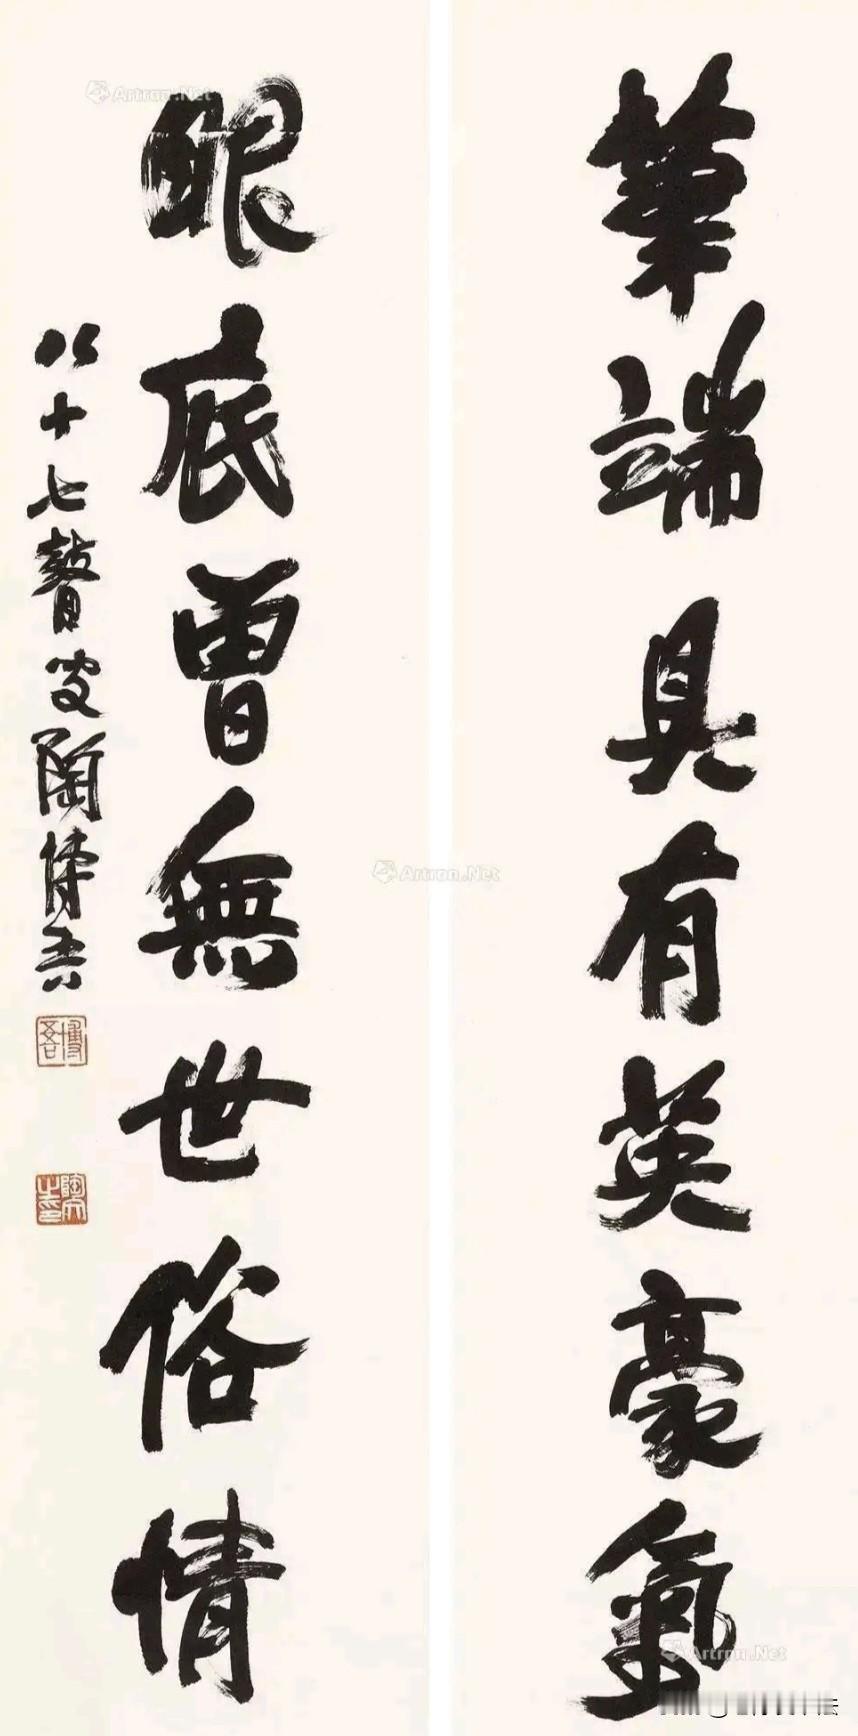 筆端具有英豪氣
眼底曾無世俗情
八十七瞽叟陶博吾
博吾
陶文之印
Artron.Net
Artron.Net
Artron.Net